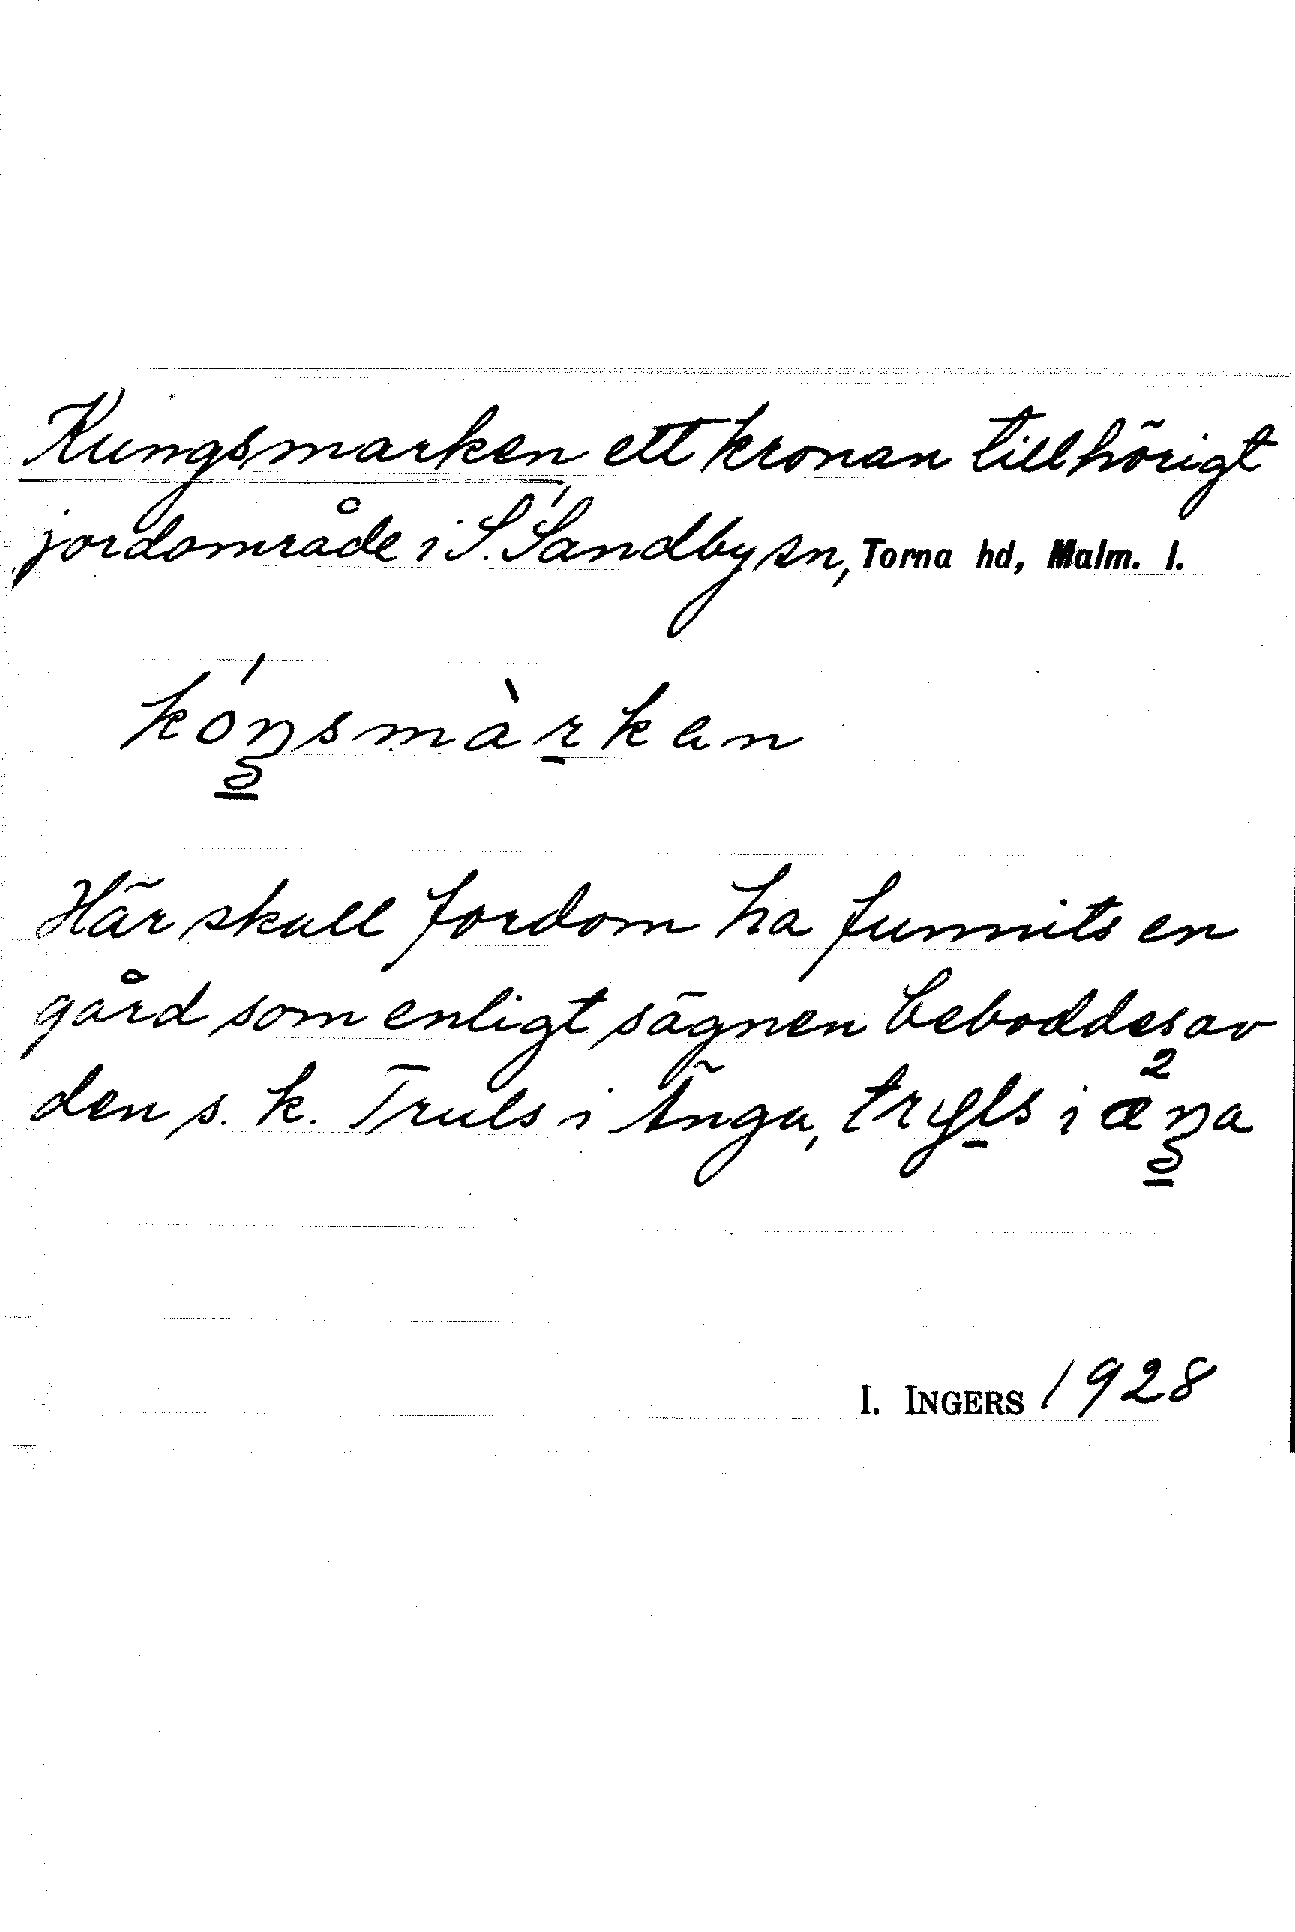 Kungsmarken, ett kronan tillhörigt
jordområde i S. Sandby sn, Torna hd, Malm. l.
kóŋsmàrkan
Här skall fordom ha funnits en
gård som enligt sägnen beboddes av
den s. k. Truls i Änga, tryls i æ²ŋa
I. INGERS 1928